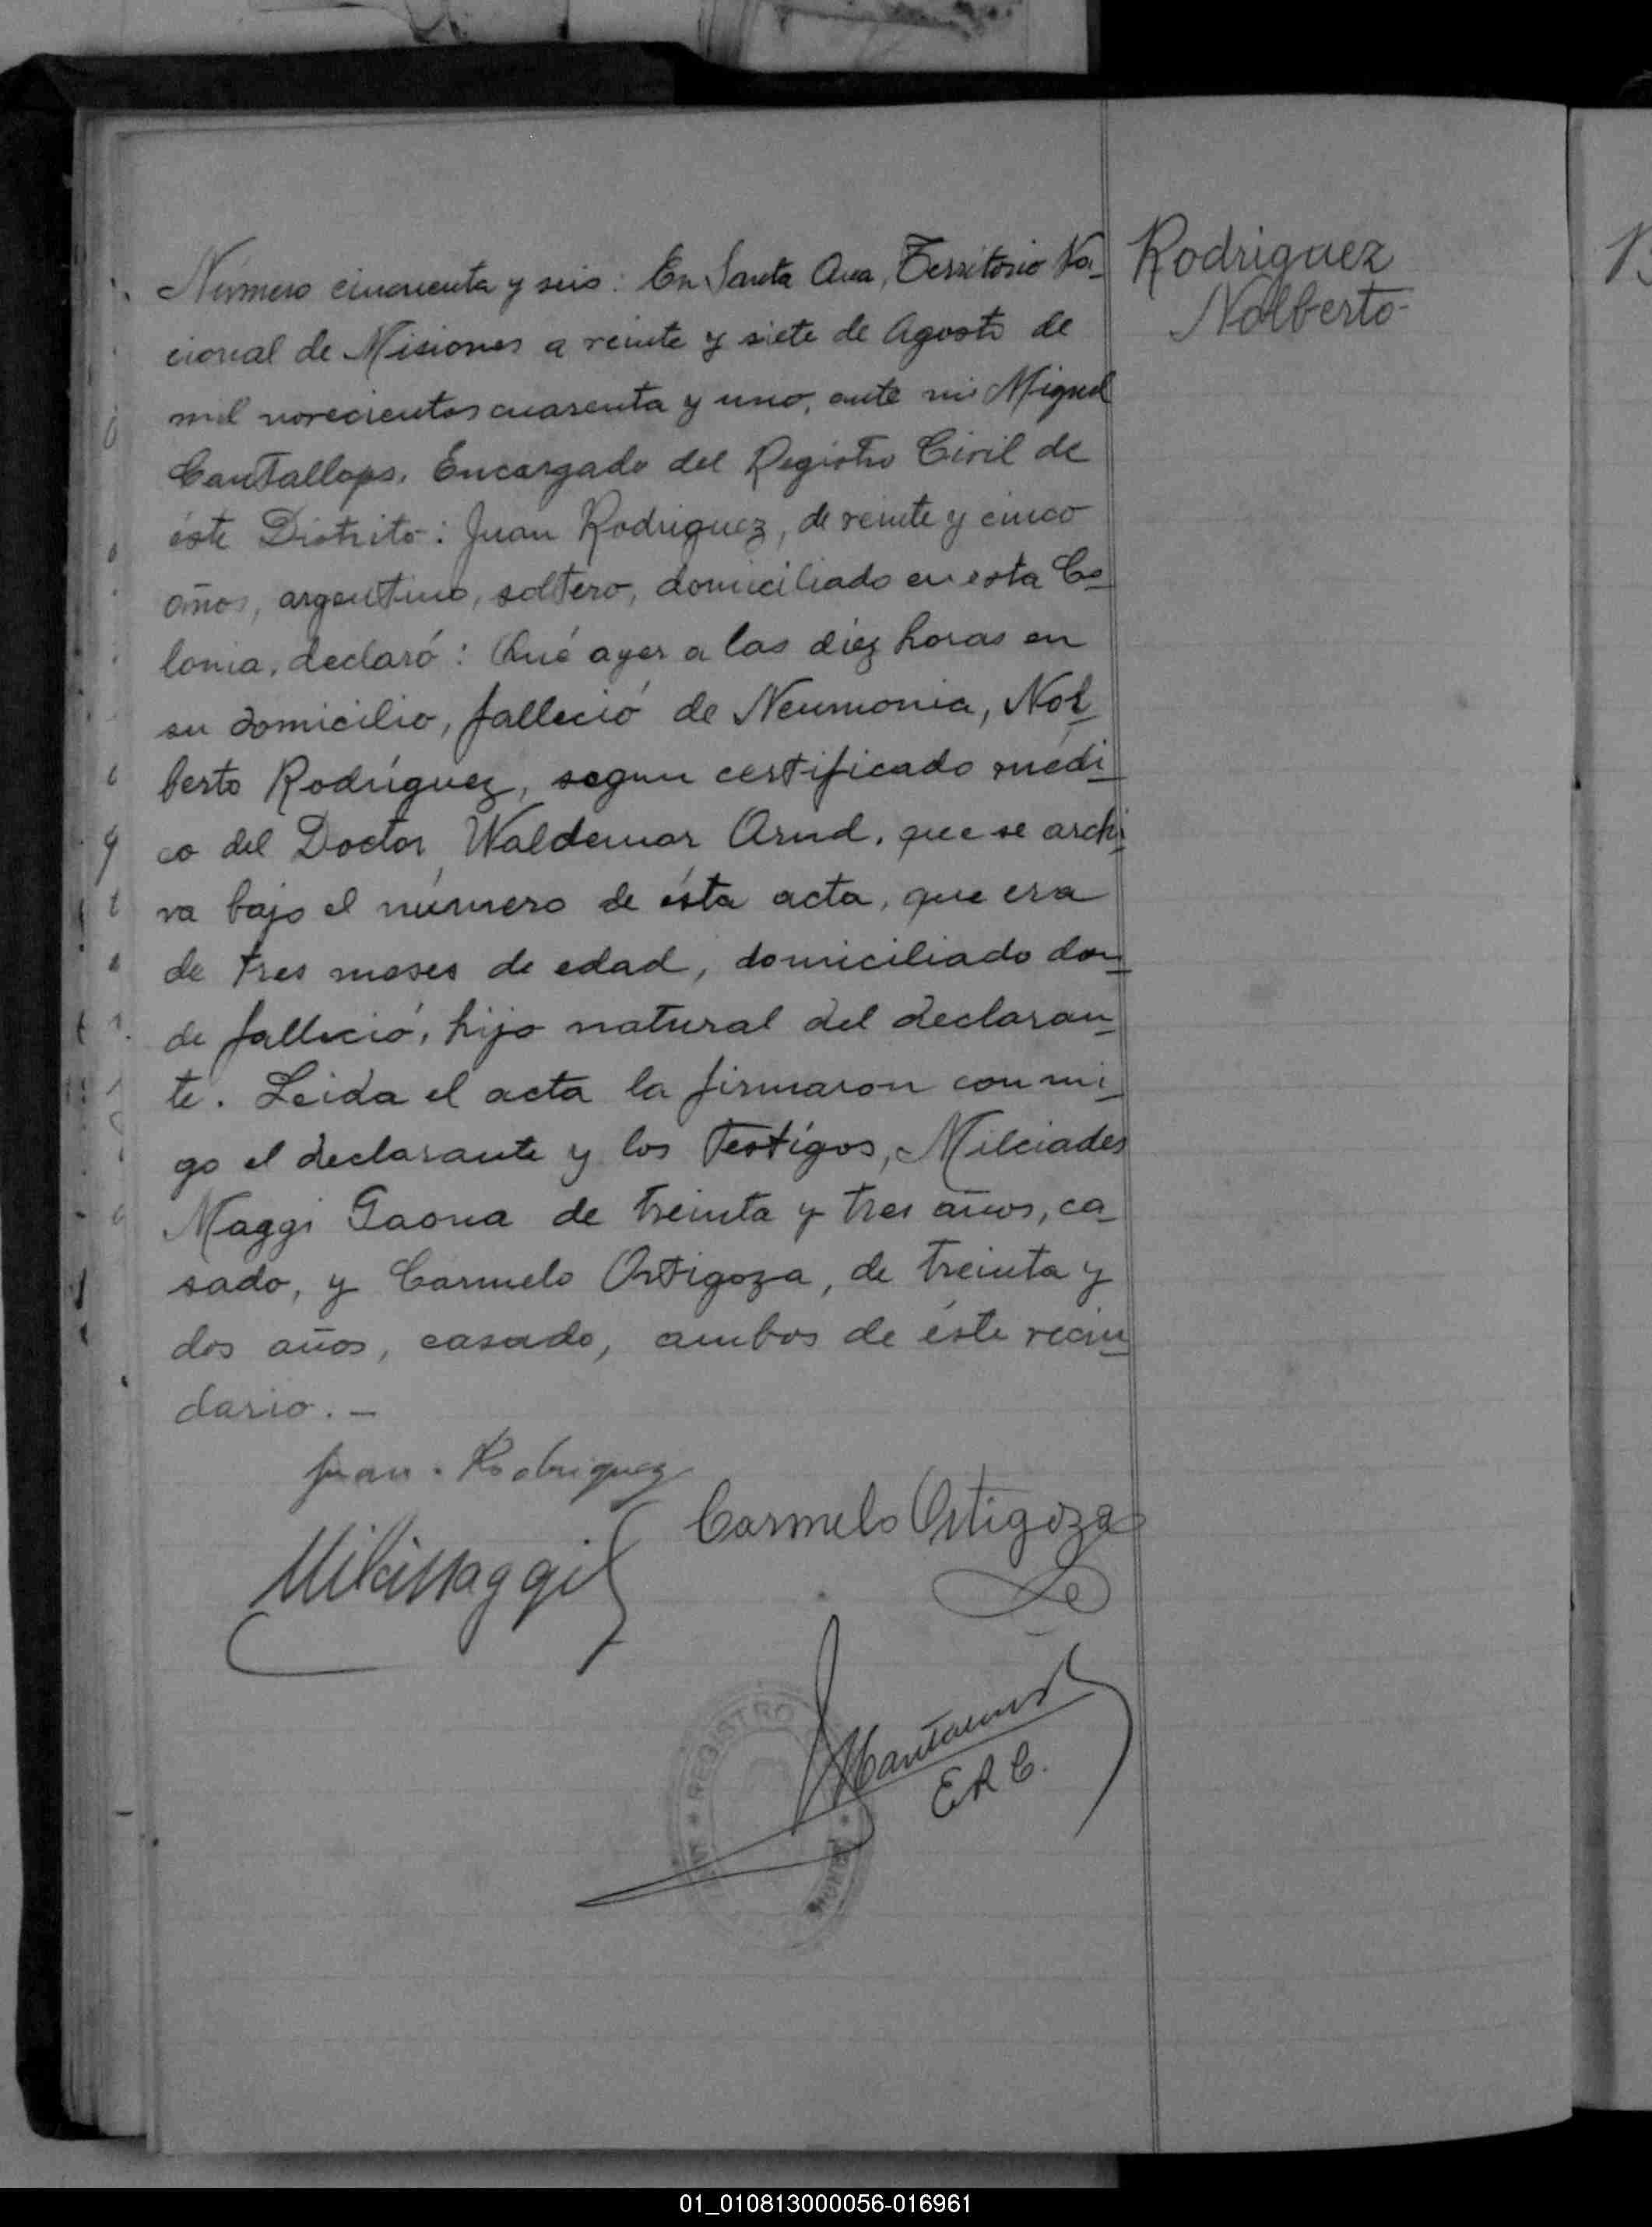 Rodriguez
Nolberto-
Número cincuenta y seis: En Santa Ana, Territorio Na-
cional de Misiones a veinte y siete de Agosto de
mil novecientos cuarenta y uno, ante mi Miguel
Cantallops, Encargado del Registro Civil de
éste Distrito: Juan Rodriguez, de veinte y cinco
años, argentino, soltero, domiciliado en esta Co-
lonia, declaró: Qué ayer a las diez horas en
su domicilio, falleció de Neumonia, Nol-
berto Rodríguez, segun certificado médi-
co del Doctor Waldemar Arnd, que se archi-
va bajo el número de ésta acta, que era
de tres meses de edad, domiciliado don-
de falleció, hijo natural del declaran-
te. Leida el acta la firmaron conmi-
go el declarante y los Testígos, Milciades
Maggi Gaona de treinta y tres años, ca-
sado, y Carmelo Ortigoza, de treinta y
dos años, casado, ambos de éste vecin-
dario.-
Juan. Rodriguez
Carmelo Ortigoza
E.R.C.
REGISTRO
01_010813000056-016961